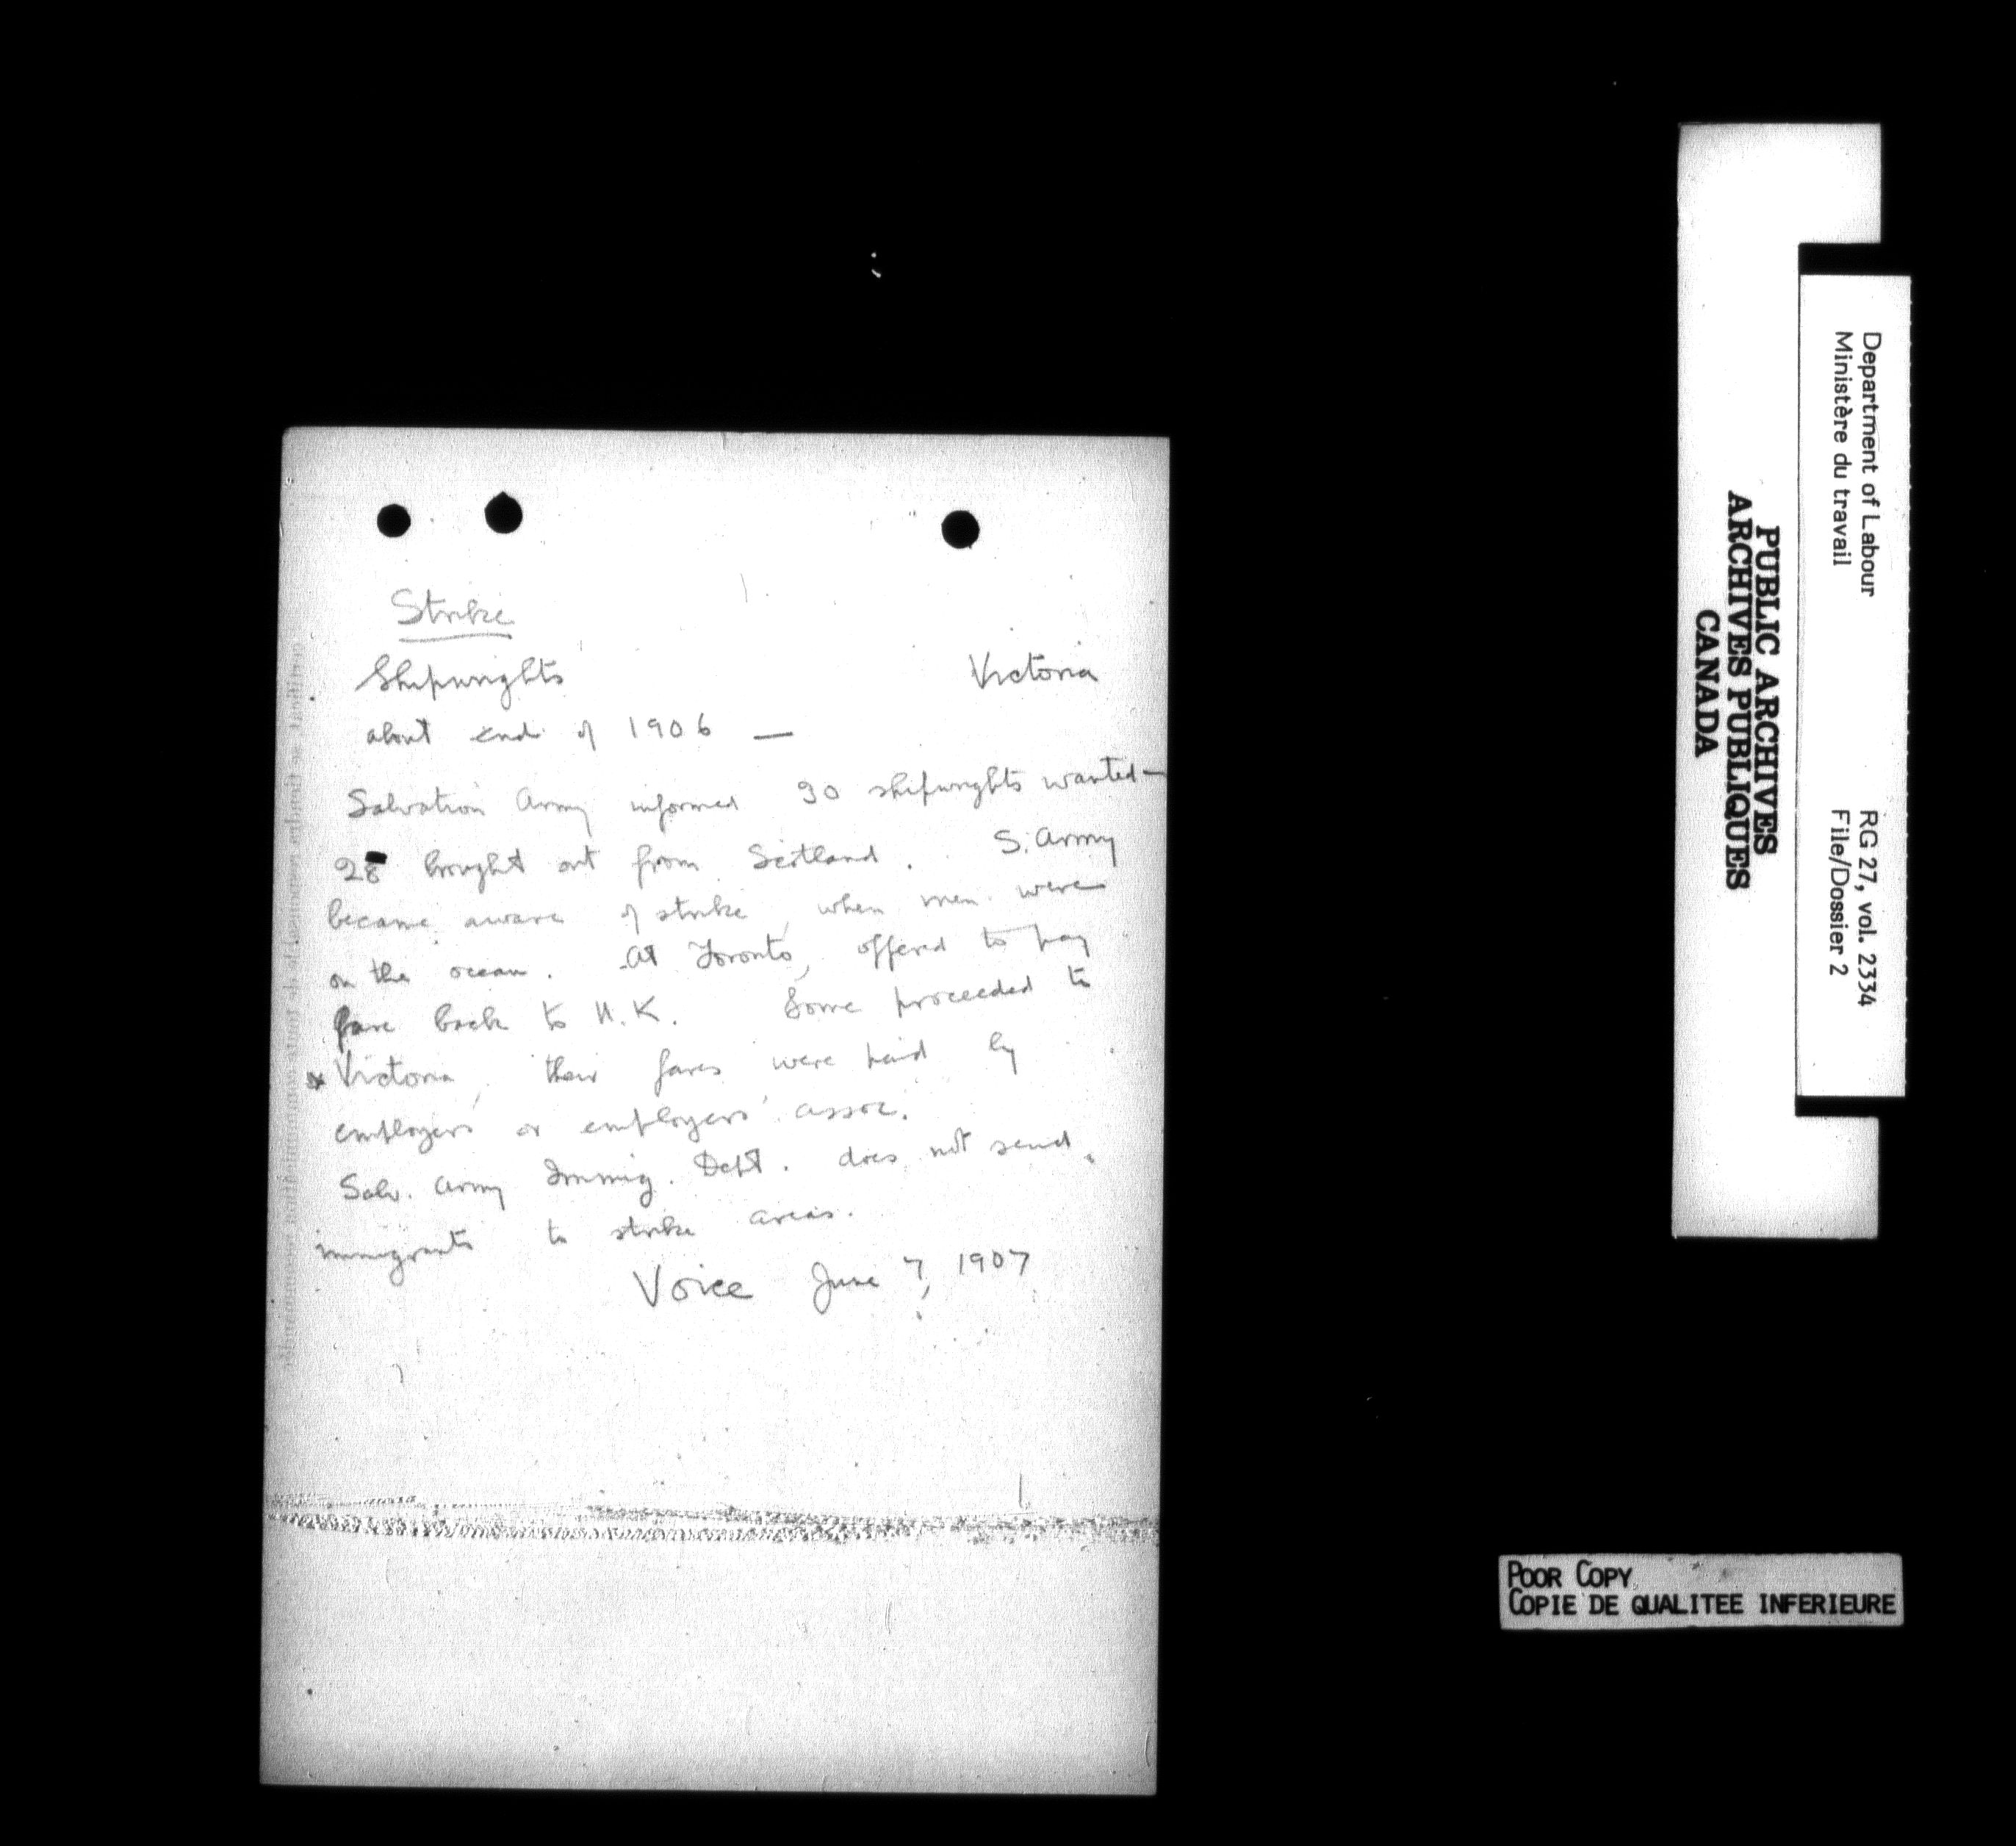 Strike
Shipwrights Victoria
about end of 1906 —
Salvation Army informed 30 shipwrights wanted —
28 brought out from Scotland. S. Army
became aware of strike, when men were
on the ocean. At Toronto, offered to pay
fare back to U.K. Some proceeded to
Victoria, their fares were paid by
employers or employers' assoc.
Salv. Army Immig. Dept. does not send
immigrants to strike areas.
Voice June 7, 1907
PUBLIC ARCHIVES
ARCHIVES PUBLIQUES
CANADA
Department of Labour
Ministère du travail
RG 27, vol. 2334
File/Dossier 2
POOR COPY
COPIE DE QUALITEE INFERIEURE